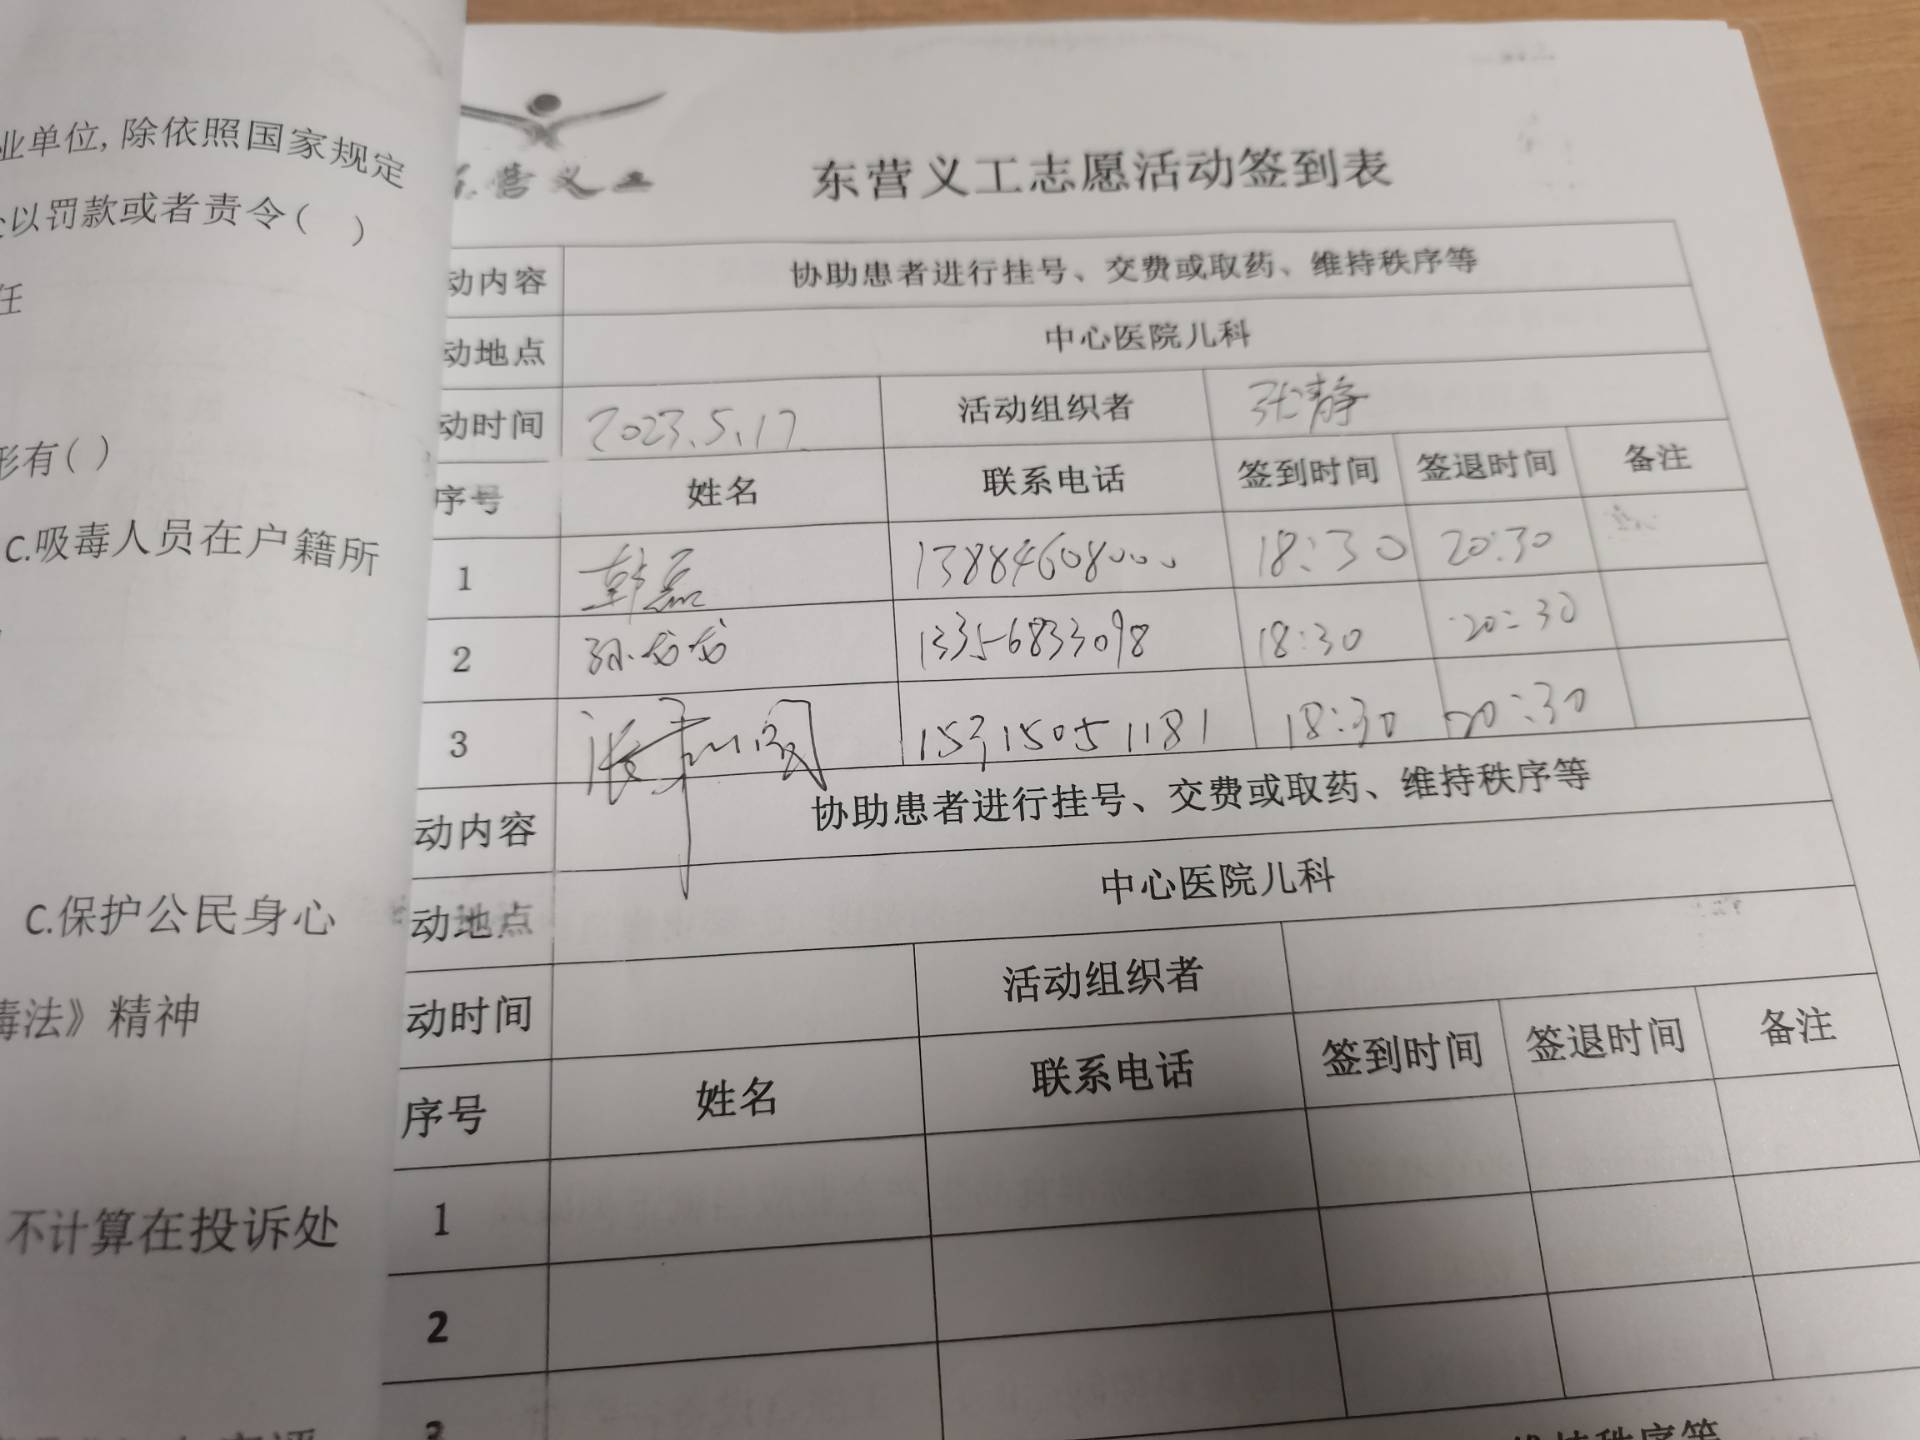 业单位,除依照国家规定
以罚款或者责令( )
任
形有( )
C.吸毒人员在户籍所
C.保护公民身心
毒法》精神
不计算在投诉处
东营义工
东营义工志愿活动签到表
动内容 协助患者进行挂号、交费或取药、维持秩序等
动地点 中心医院儿科
动时间 2023.5.17 活动组织者 张静
序号 姓名 联系电话 签到时间 签退时间 备注
1 韩磊 13884608000 18:30 20:30
2 孙龙龙 13356833098 18:30 20:30
3 张 15315051181 18:30 20:30
动内容 协助患者进行挂号、交费或取药、维持秩序等
动地点 中心医院儿科
动时间 活动组织者
序号 姓名 联系电话 签到时间 签退时间 备注
1
2
3
维持秩序等